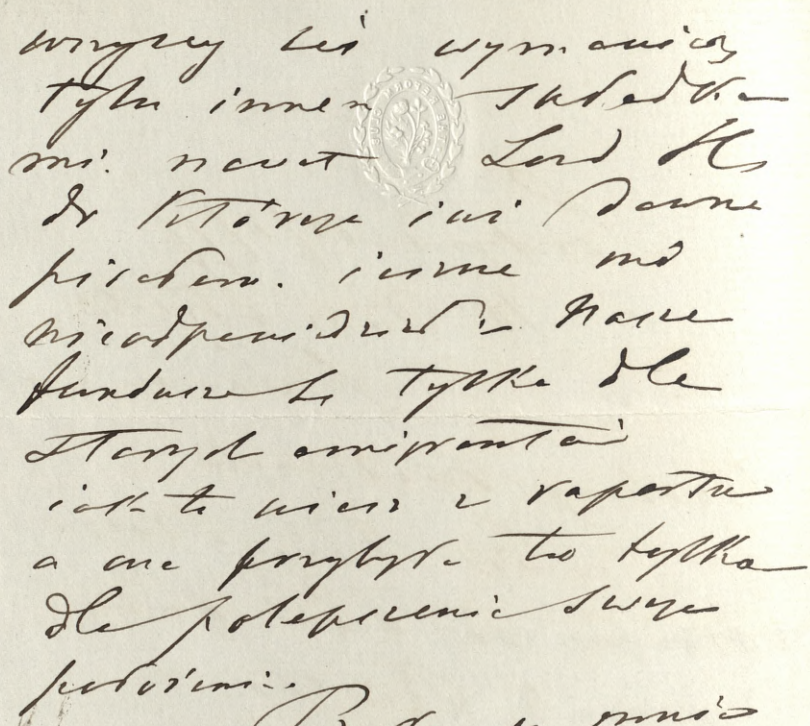 wszyscy się wymawiają
tylu innem składka
mi. nawet Lord
do którego iuż dawno
pisałem. ieszcze
nieodpowiedział – Nasze
fundusze są tylko dla
starych emigrantów
iak to wiesz z raportu
a one przybyły tu tylko
dla polepszenia swego
położenia.